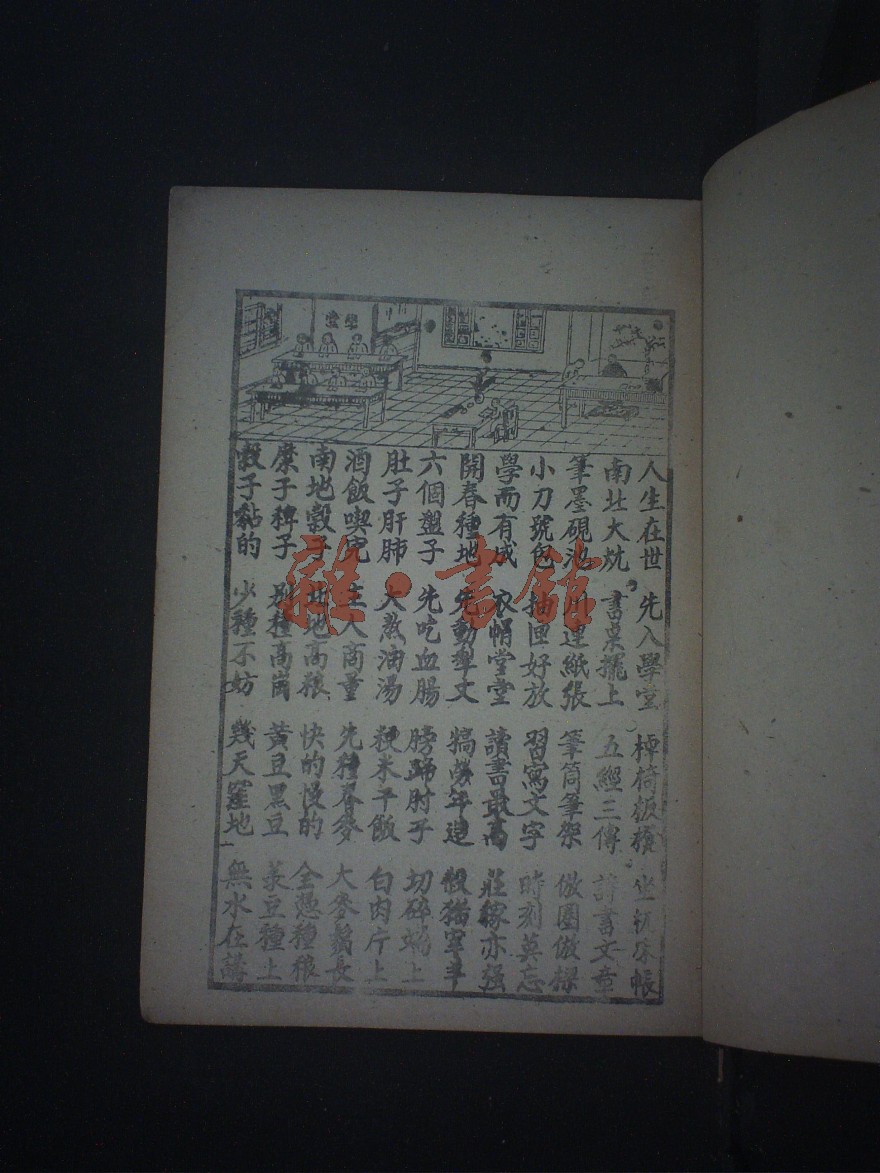 學堂
人生在世 先入學堂 棹椅板櫈 坐机床帳
南北大炕 書桌擺上 五經三傳 詩書文章
筆墨硯池 通紙張 筆筒筆架 倣圈倣樣
小刀號包 抽匣好放 習寫文字 時刻莫忘
學而有成 衣帽堂堂 讀書最高 莊稼亦强
開春種地 先動犂丈 犒勞年造 殺猪宰羊
六個盤子 先吃血腸 膀蹄肘子 切碎端上
肚子肝肺 大熬油湯 粳米干飯 白肉片上
酒飯喫完 主人商量 先種春麥 大麥鬚長
南地穀子 北地高粮 快的慢的 全憑種粮
糜子稗子 別種高崗 黃豆黑豆 菉豆種上
穀子黏的 少種不妨 幾天窪地 無水在講
雜·書館